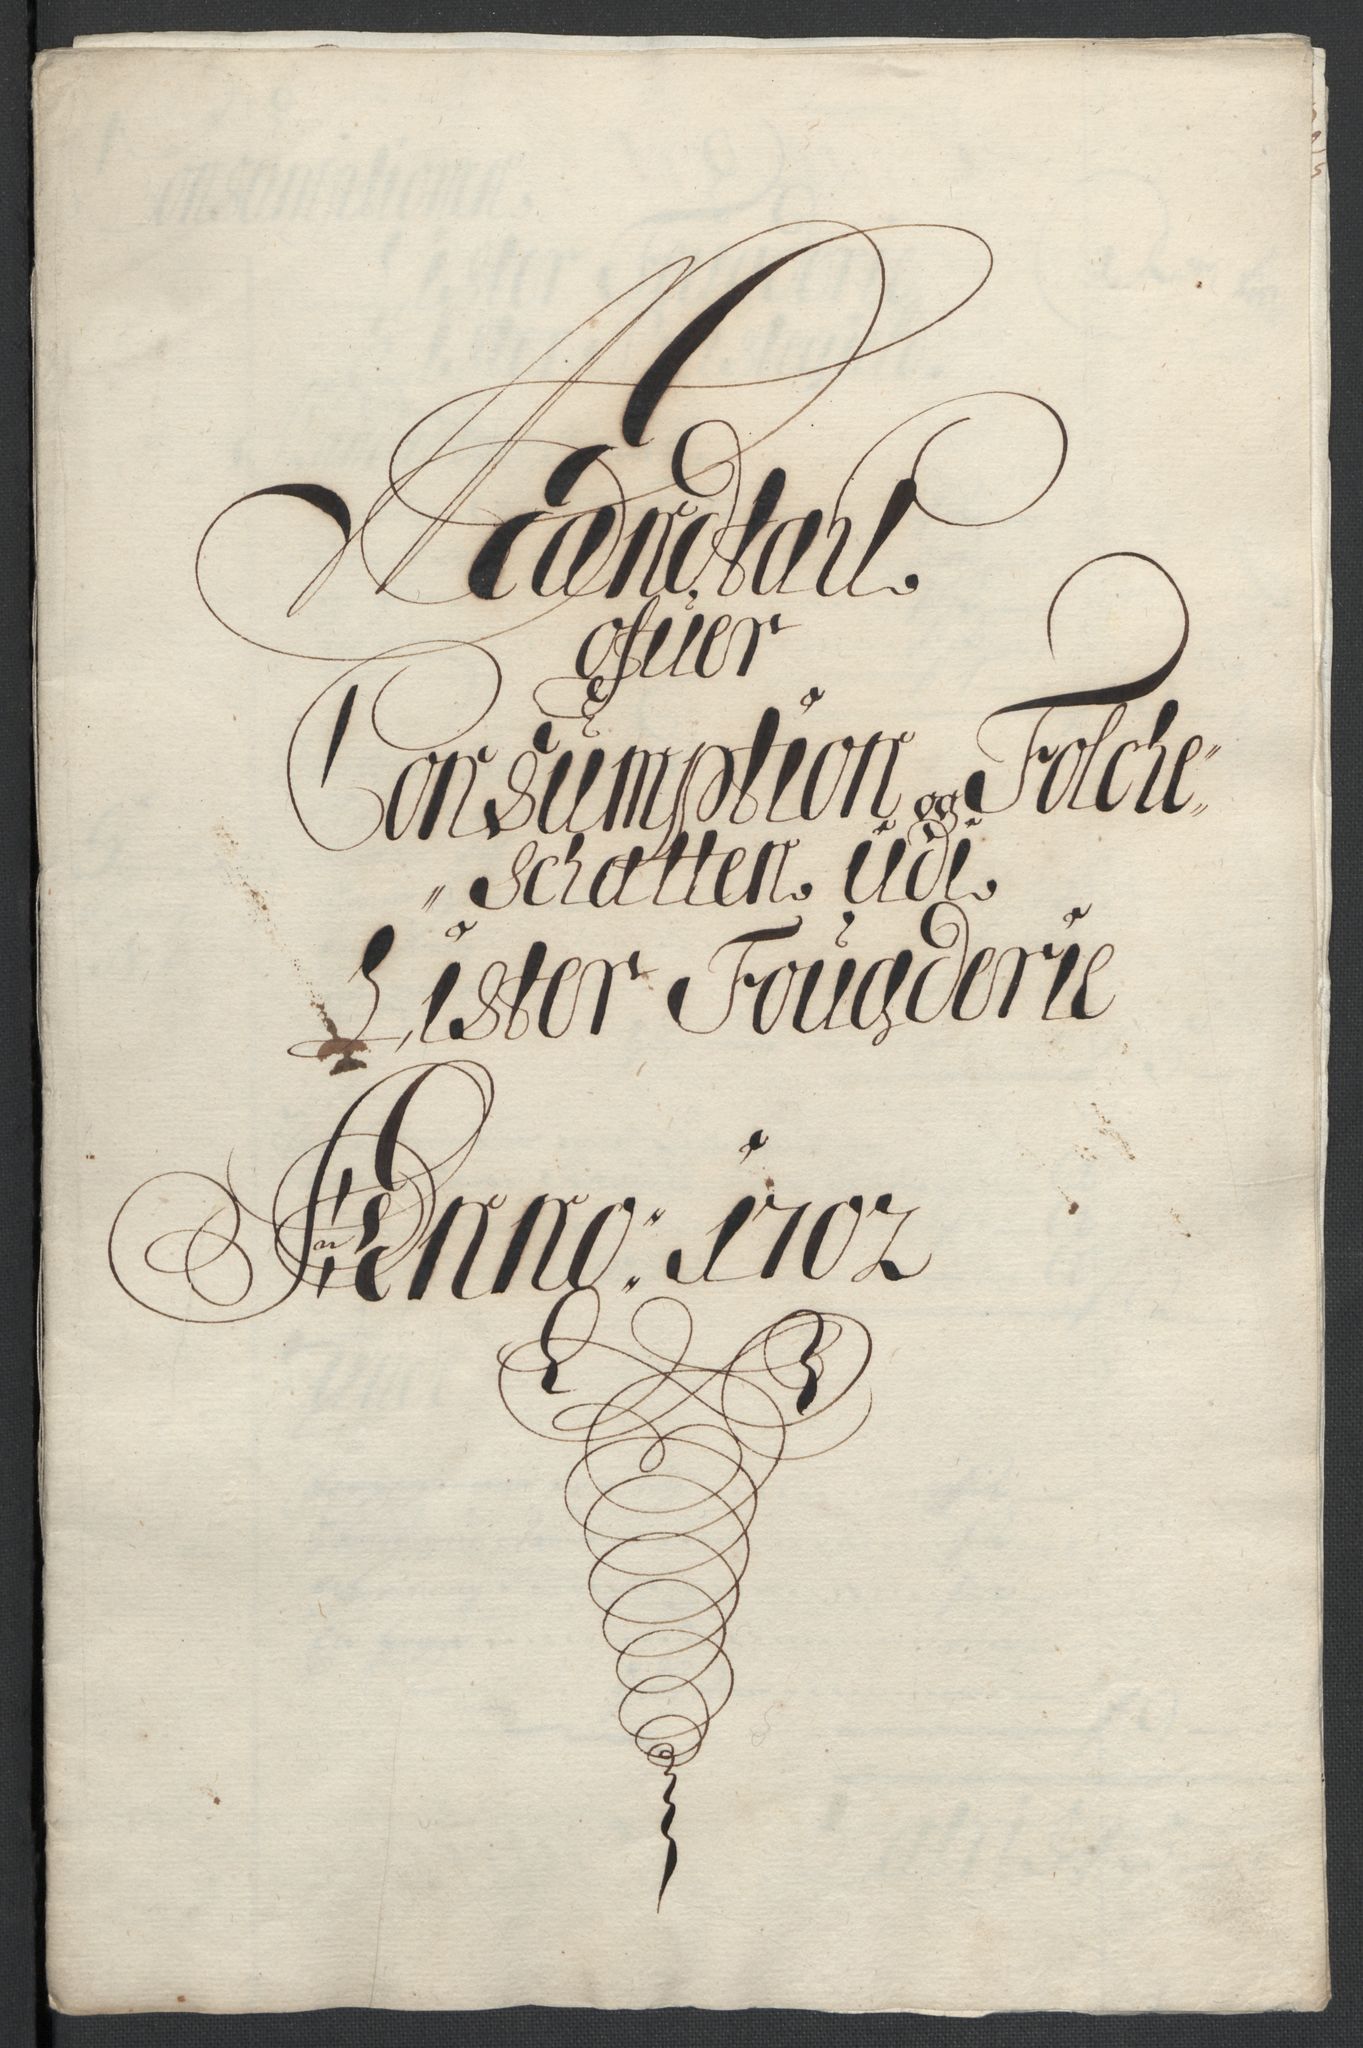 Mandtall
ofuer
Consumption og Folche„
„schatten udi
Lister Fougderie
Anno: 1702